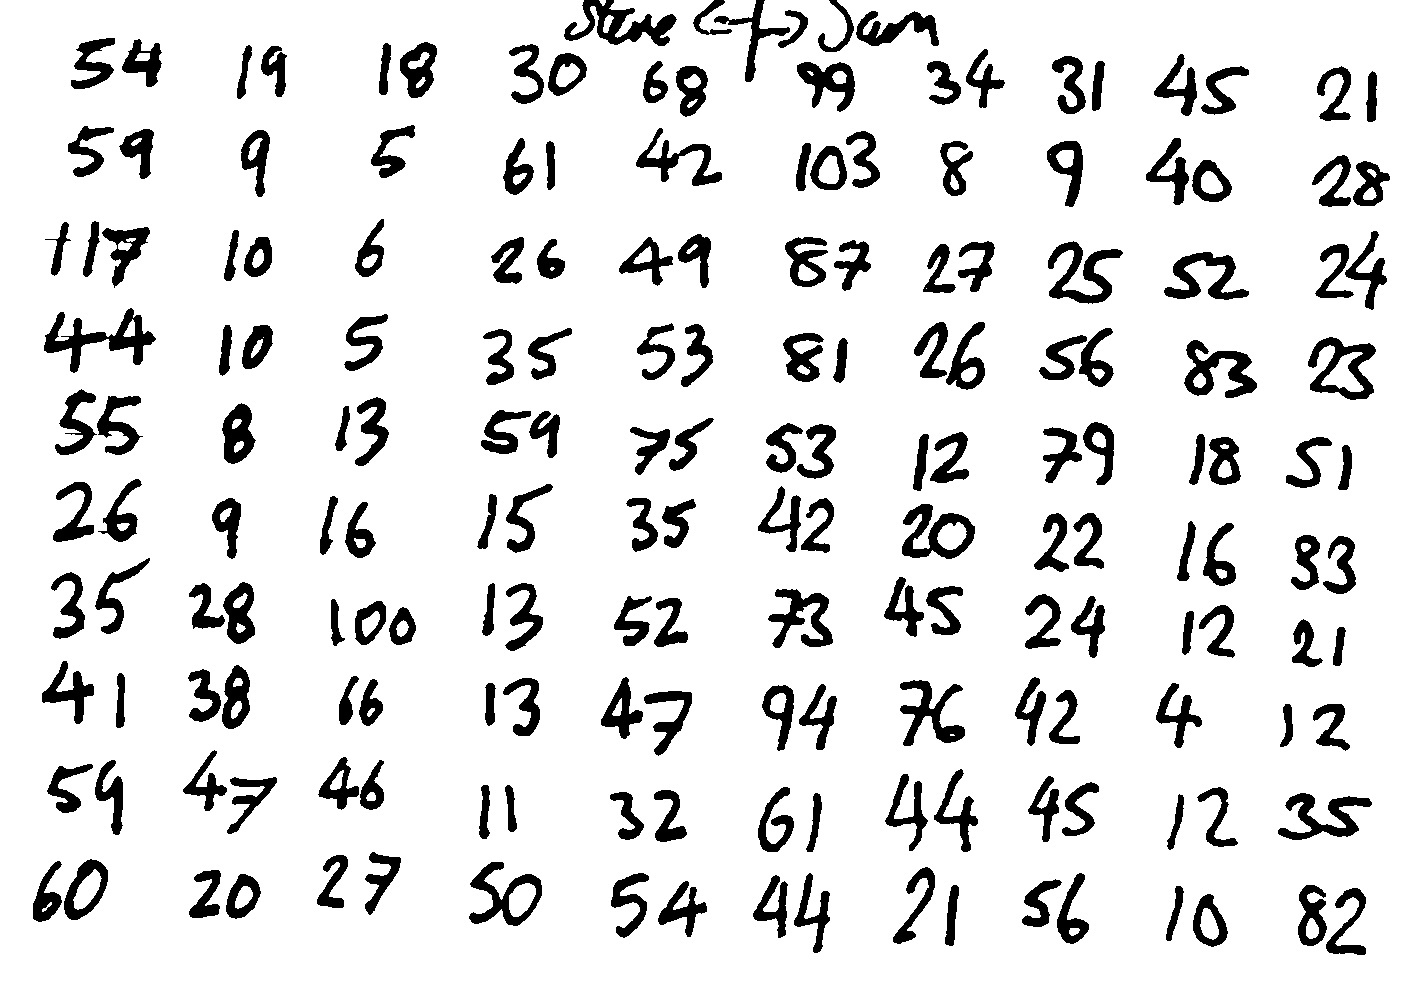 Steve <-|-> Sam
54 19 18 30 68 99 34 31 45 21
59 9 5 61 42 103 8 9 40 28
117 10 6 26 49 87 27 25 52 24
44 10 5 35 53 81 26 56 83 23
55 8 13 59 75 53 12 79 18 51
26 9 16 15 35 42 20 22 16 33
35 28 100 13 52 73 45 24 12 21
41 38 66 13 47 94 76 42 4 12
59 47 46 11 32 61 44 45 12 35
60 20 27 50 54 44 21 56 10 82